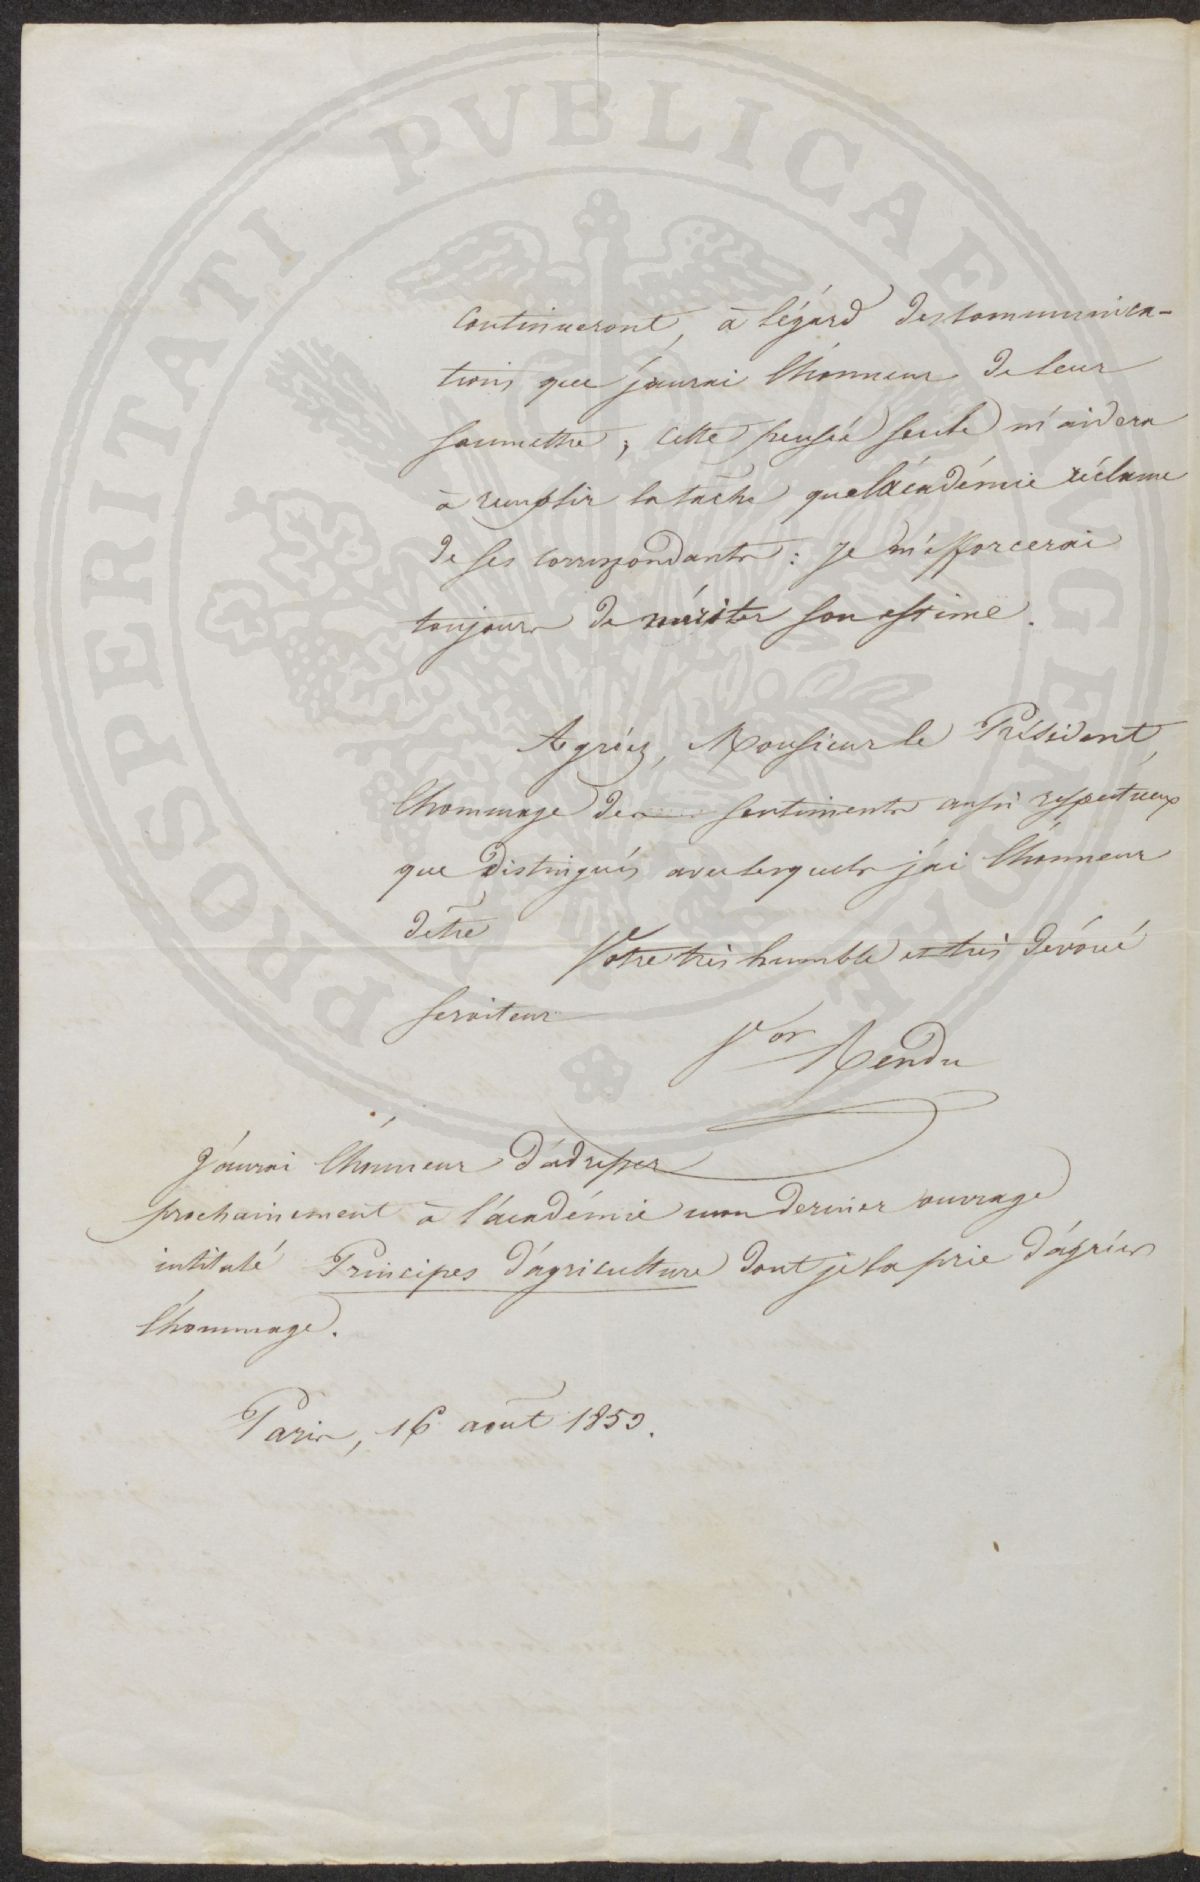 PROSPERITATI PVBLICAE AVGENDAE
continueront, à l'égard des communica-
tions que j'aurai l'honneur de leur
soumettre ; cette pensée seule m'aidera
à remplir la tâche que l'académie réclame
de ses correspondants : je m'efforcerai
toujours de mériter son estime.
Agréez, Monsieur le Président,
l'hommage des sentiments aussi respectueux
que distingués avec lesquels j'ai l'honneur
d'être
Votre très humble et très dévoué
serviteur
Vor Rendu
J'aurai l'honneur d'adresser
prochainement à l'académie mon dernier ouvrage
intitulé Principes d'agriculture dont je la prie d'agréer
l'hommage.
Paris, 16 août 1859.